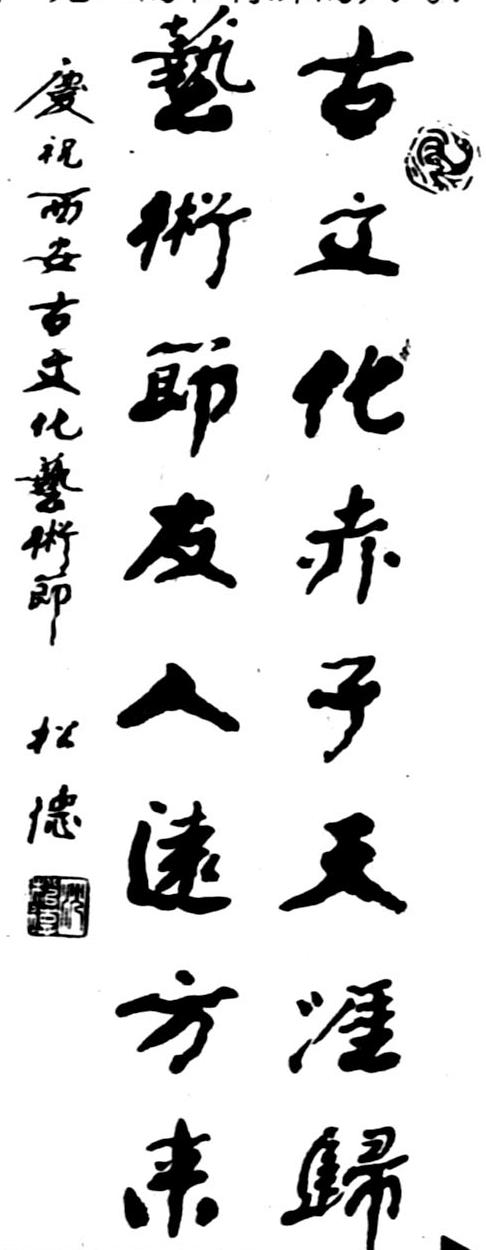 古文化赤子天涯歸
藝術節友人遠方来
慶祝西安古文化藝術節
松德